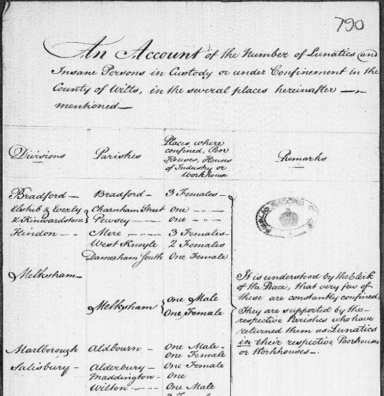 790
An Account of the Number of Lunatics and
Insane Persons in Custody or under Confinement in the
County of Wilts, in the several places hereinafter —
mentioned —
Divisions Parishes Places where confined, Poor Houses, Houses of Industry or Workhouse Remarks
Bradford — Bradford — 3 Females —
& Everly Charnham Street one —
& Kinwardstone Pewsey — one —
Hindon — Mere — 3 Females
West Knoyle 2 Females
Damerham South One Female
Melksham — Melksham One Male
One Female
Marlborough Aldbourn — One Male —
One Female
Salisbury — Alderbury — One Female
Maddington — One
Wilton — One Male
It is understood by the Clerk
of the Peace, that very few of
these are constantly confined.
They are supported by the
respective Parishes who have
returned them as Lunatics
in their respective Poorhouses
or Workhouses —